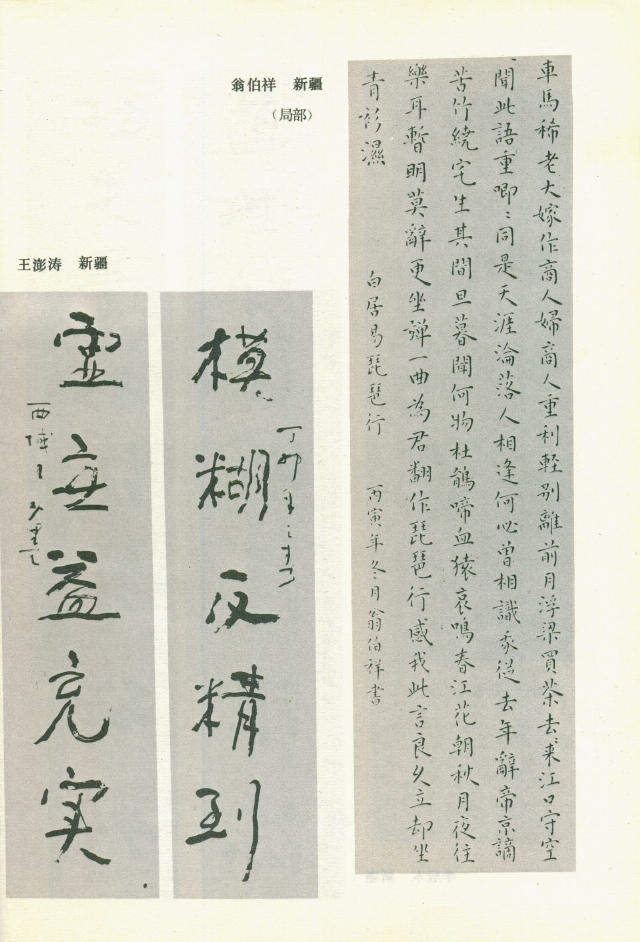 翁伯祥 新疆
（局部）
車馬稀老大嫁作商人婦商人重利輕別離前月浮梁買茶去來江口守空
聞此語重唧〻同是天涯淪落人相逢何必曾相識我從去年辭帝京謫
苦竹繞宅生其間旦暮聞何物杜鵑啼血猿哀鳴春江花朝秋月夜往
樂耳暫明莫辭更坐彈一曲為君翻作琵琶行感我此言良久立却坐
青衫濕 白居易琵琶行 丙寅年冬月翁伯祥書
王澎涛 新疆
模糊反精到
丁卯年
虚無益充实